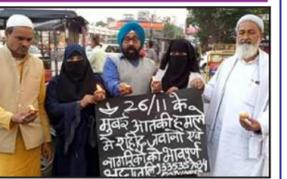 26/11 के
मुंबई आतंकी हमले
मे शहिद जवानों एवं
नागरिकों को भावपुर्ण
श्रद्धांजलि